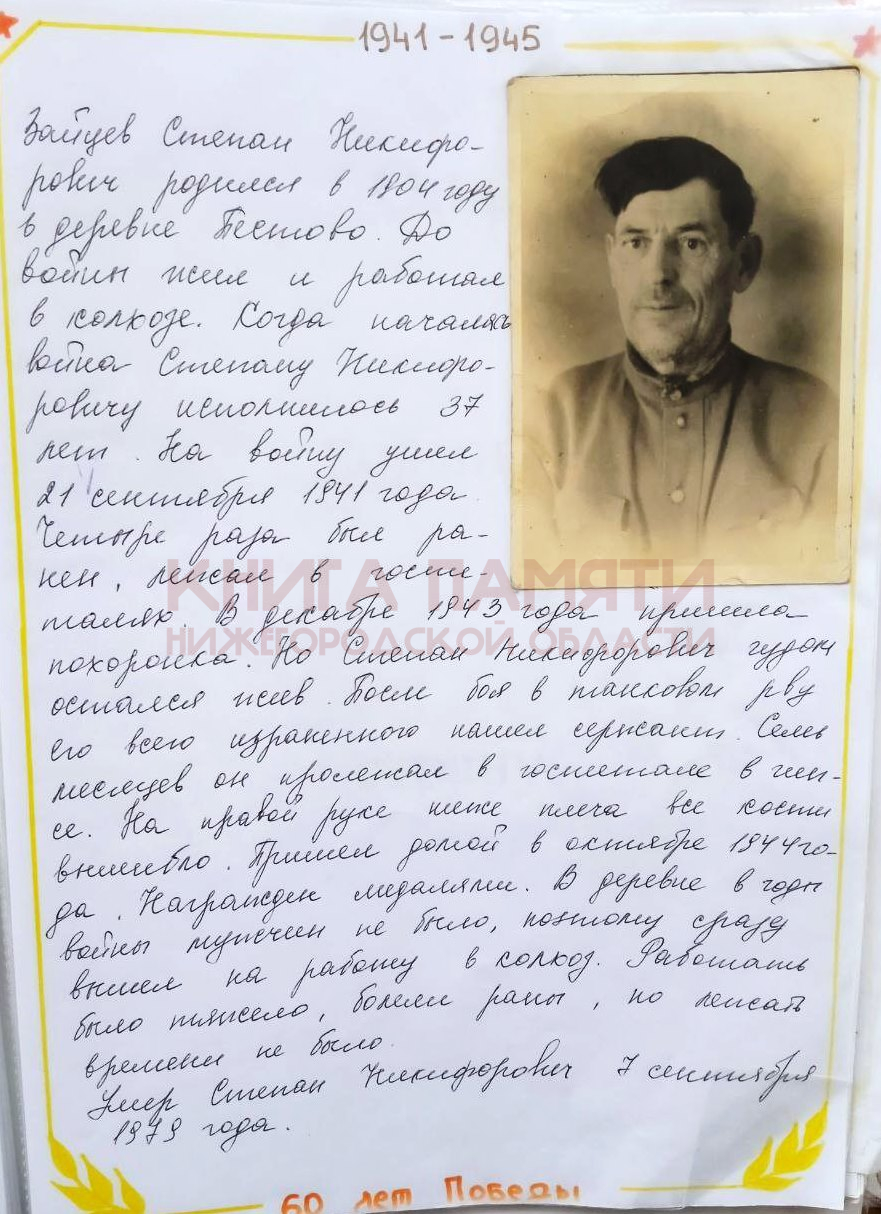 1941-1945
Зайцев Степан Никифо-
рович родился в 1904 году
в деревне Тестово. До
войны жил и работал
в колхозе. Когда началась
война Степану Никифо-
ровичу исполнилось 37
лет. На войну ушел
21 сентября 1941 года.
Четыре раза был ра-
нен, лежал в госпи-
талях. В декабре 1943 года пришла
похоронка. Но Степан Никифорович чудом
остался жив. После боя в танковом рву
его всего израненного нашел сержант. Семь
месяцев он пролежал в госпитале в гип-
се. На правой руке ниже плеча все кости
вышибло. Пришел домой в октябре 1944 го-
да. Награжден медалями. В деревне в годы
войны мужчин не было, поэтому сразу
вышел на работу в колхоз. Работать
было тяжело, болели раны, но лежать
времени не было.
Умер Степан Никифорович 7 сентября
1979 года.
60 лет Победы
КНИГА ПАМЯТИ
НИЖЕГОРОДСКОЙ ОБЛАСТИ